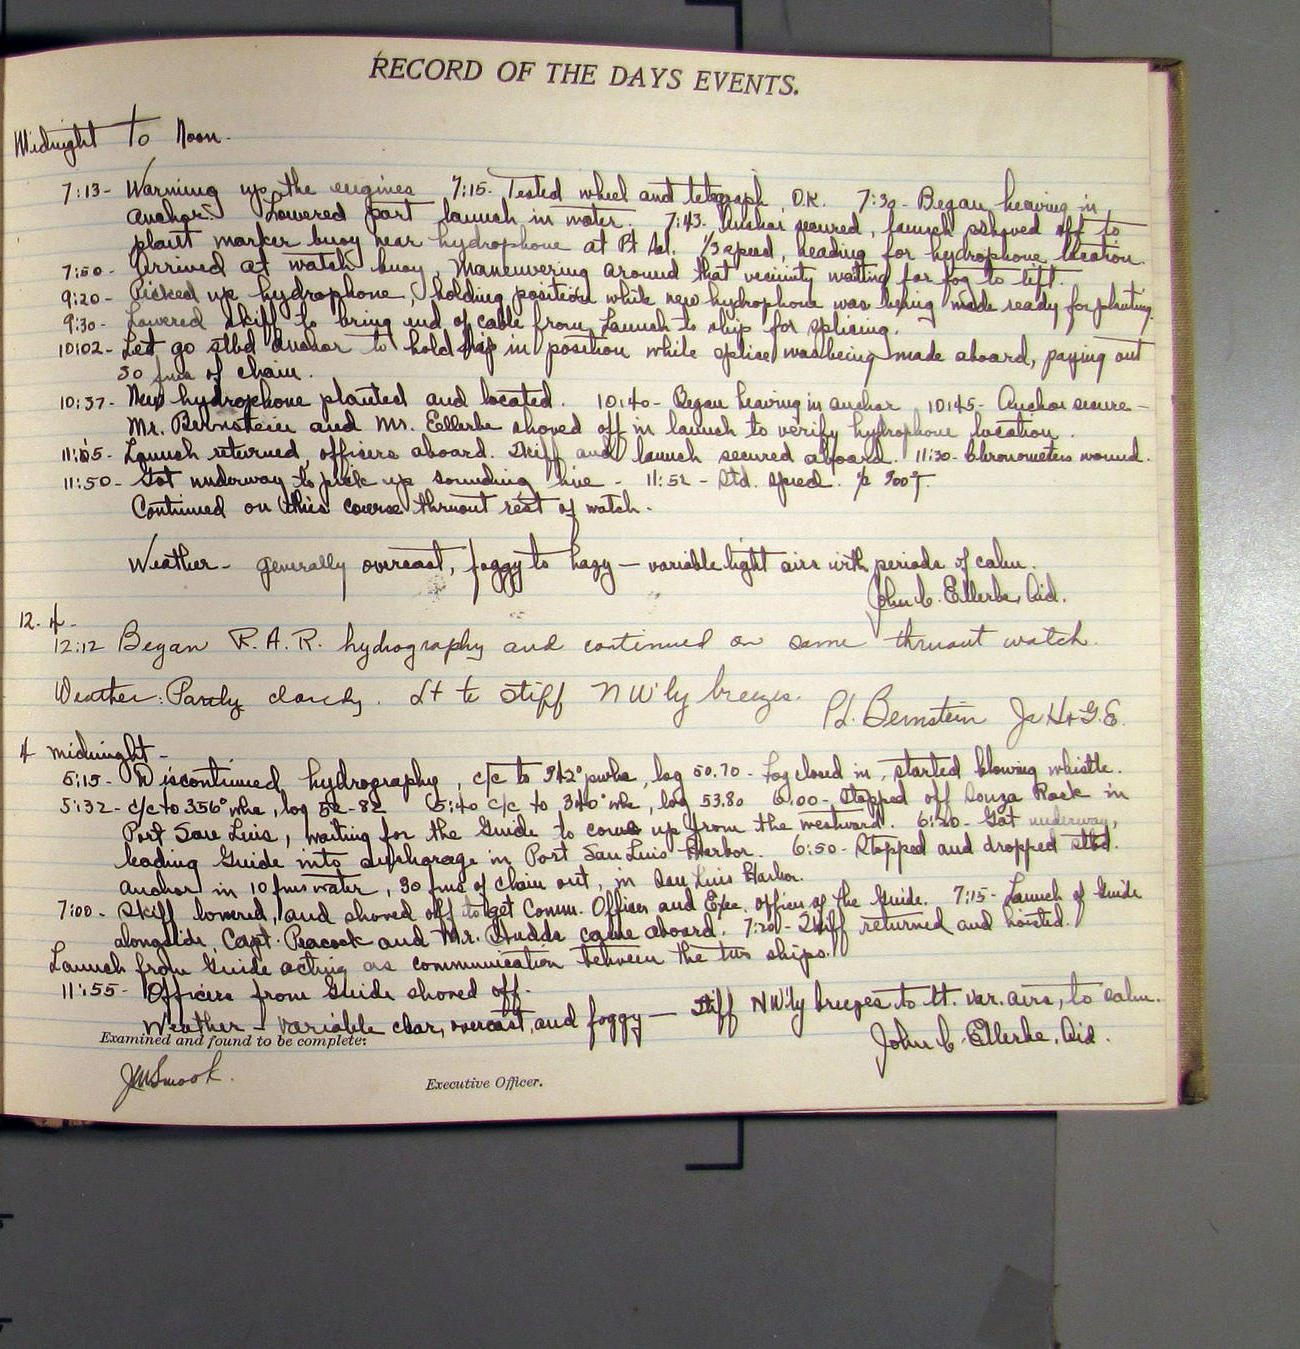 RECORD OF THE DAYS EVENTS.
Midnight to Noon.
7:13- Warming up the engines 7:15- Tested wheel and telegraph O.K. 7:30- Began heaving in
anchor. Lowered port launch in water. 7:43- Anchor secured, launch shoved off to
plant marker buoy near hydrophone at Pt Sal. 1/3 speed, heading for hydrophone location.
7:50- Arrived at watch buoy. Maneuvering around that vicinity waiting for fog to lift.
9:20- Picked up hydrophone, holding position while new hydrophone was being made ready for planting.
9:30- Lowered skiff to bring end of cable from launch to ship for splicing.
10:02- Let go stbd anchor to hold ship in position while splice was being made aboard, paying out
30 fms of chain.
10:37- New hydrophone planted and located. 10:40- Began heaving in anchor 10:45- Anchor secure-
Mr. Bernstein and Mr. Ellerbe shoved off in launch to verify hydrophone location.
11:05- Launch returned, officers aboard. Skiff and launch secured aboard. 11:30- Chronometers wound.
11:50- Got underway to pick up sounding line - 11:52 - Std. speed.
Continued on this course thruout rest of watch.
Weather- generally overcast, foggy to hazy — variable light airs with periods of calm.
John C. Ellerbe, Aid.
12-4-
12:12 Began R.A.R. hydrography and continued on same thruout watch.
Weather: Partly cloudy. Lt to stiff NW'ly breezes.
P.L. Bernstein Jr H+G.E.
4 midnight-
5:15- Discontinued hydrography, c/c to 342° pwhc, log 50.70- Fog closed in, started blowing whistle.
5:32- c/c to 356° whc, log 52-82 5:40 c/c to 340° whc, log 53.80 6:00- Stopped off Souza Rock in
Port San Luis, waiting for the Guide to come up from the westward. 6:20- Got underway,
leading Guide into anchorage in Port San Luis Harbor. 6:50- Stopped and dropped stbd.
anchor in 10 fms water, 30 fms of chain out, in San Luis Harbor.
7:00- Skiff lowered, and shoved off to get Comm. Officer and Exec. officer of the Guide. 7:15- Launch of Guide
alongside, Capt. Peacock and Mr. came aboard. 7:20- Skiff returned and hoisted.
Launch from Guide acting as communication between the two ships.
11:55- Officers from Guide shoved off.
Weather - Variable clear, overcast, and foggy — Stiff NW'ly breezes to lt. var. airs, to calm.
Examined and found to be complete:
John C. Ellerbe, Aid.
JM Smook.
Executive Officer.